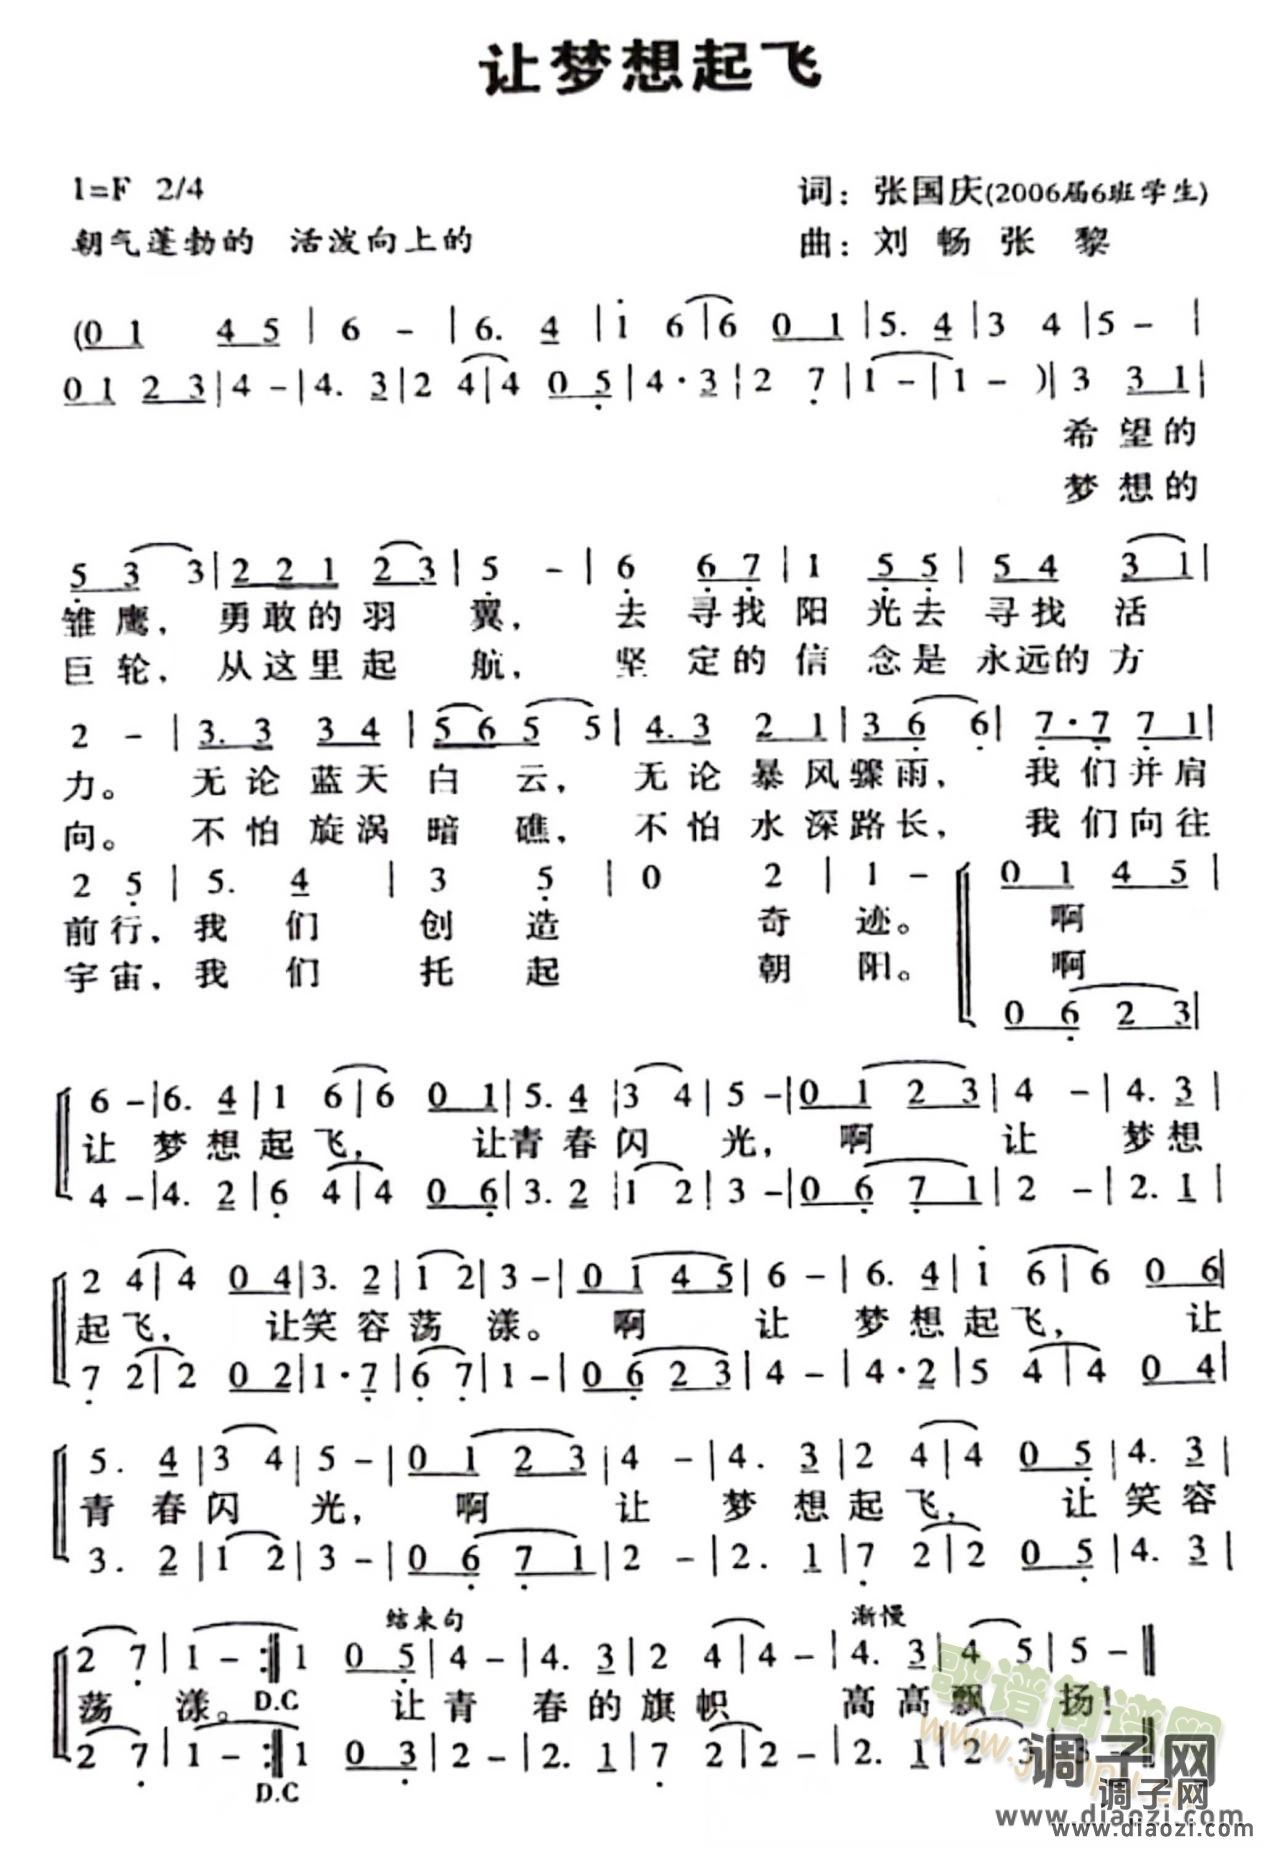 让梦想起飞
1=F 2/4 词：张国庆(2006届6班学生)
朝气蓬勃的 活泼向上的 曲：刘 畅 张 黎
(0 1 4 5 | 6 - | 6. 4 | i 6 | 6 0 1 | 5. 4 | 3 4 | 5 - |
0 1 2 3 | 4 - | 4. 3 | 2 4 | 4 0 5 | 4 · 3 | 2 7 | 1 - | 1 - ) | 3 3 1 |
希 望 的
梦 想 的
5 3 3 | 2 2 1 2 3 | 5 - | 6 6 7 | 1 5 5 | 5 4 3 1 |
雏 鹰， 勇 敢 的 羽 翼， 去 寻 找 阳 光 去 寻 找 活
巨 轮， 从 这 里 起 航， 坚 定 的 信 念 是 永 远 的 方
2 - | 3. 3 3 4 | 5 6 5 5 | 4. 3 2 1 | 3 6 6 | 7 · 7 7 1 |
力。 无 论 蓝 天 白 云， 无 论 暴 风 骤 雨， 我 们 并 肩
向。 不 怕 旋 涡 暗 礁， 不 怕 水 深 路 长， 我 们 向 往
2 5 | 5. 4 | 3 5 | 0 2 | 1 - 0 1 4 5 |
前 行， 我 们 创 造 奇 迹。 啊
宇 宙， 我 们 托 起 朝 阳。 啊
0 6 2 3 |
6 - | 6. 4 | 1 6 | 6 0 1 | 5. 4 | 3 4 | 5 - | 0 1 2 3 | 4 - | 4. 3 |
让 梦 想 起 飞， 让 青 春 闪 光， 啊 让 梦 想
4 - | 4. 2 | 6 4 | 4 0 6 | 3. 2 | 1 2 | 3 - | 0 6 7 1 | 2 - | 2. 1 |
2 4 | 4 0 4 | 3. 2 | 1 2 | 3 - | 0 1 4 5 | 6 - | 6. 4 | i 6 | 6 0 6 |
起 飞， 让 笑 容 荡 漾。 啊 让 梦 想 起 飞， 让
7 2 | 2 0 2 | 1 · 7 | 6 7 | 1 - | 0 6 2 3 | 4 - | 4 · 2 | 5 4 | 4 0 4 |
5. 4 | 3 4 | 5 - | 0 1 2 3 | 4 - | 4. 3 | 2 4 | 4 0 5 | 4. 3 |
青 春 闪 光， 啊 让 梦 想 起 飞， 让 笑 容
3. 2 | 1 2 | 3 - | 0 6 7 1 | 2 - | 2. 1 | 7 2 | 2 0 5 | 4. 3 |
结束句 渐慢
2 7 | 1 - :‖ 1 0 5 | 4 - | 4. 3 | 2 4 | 4 - | 4. 3 | 4 5 | 5 - ‖
荡 漾。 D.C 让 青 春 的 旗 帜 高 高 飘 扬！
2 7 | 1 - :‖ 1 0 3 | 2 - | 2. 1 | 7 2 | 2 - | 2. 1 | 2 3 | 3 - ‖
D.C
歌谱简谱网
调子网
调子网
www.diaozi.com
www.diaozi.com